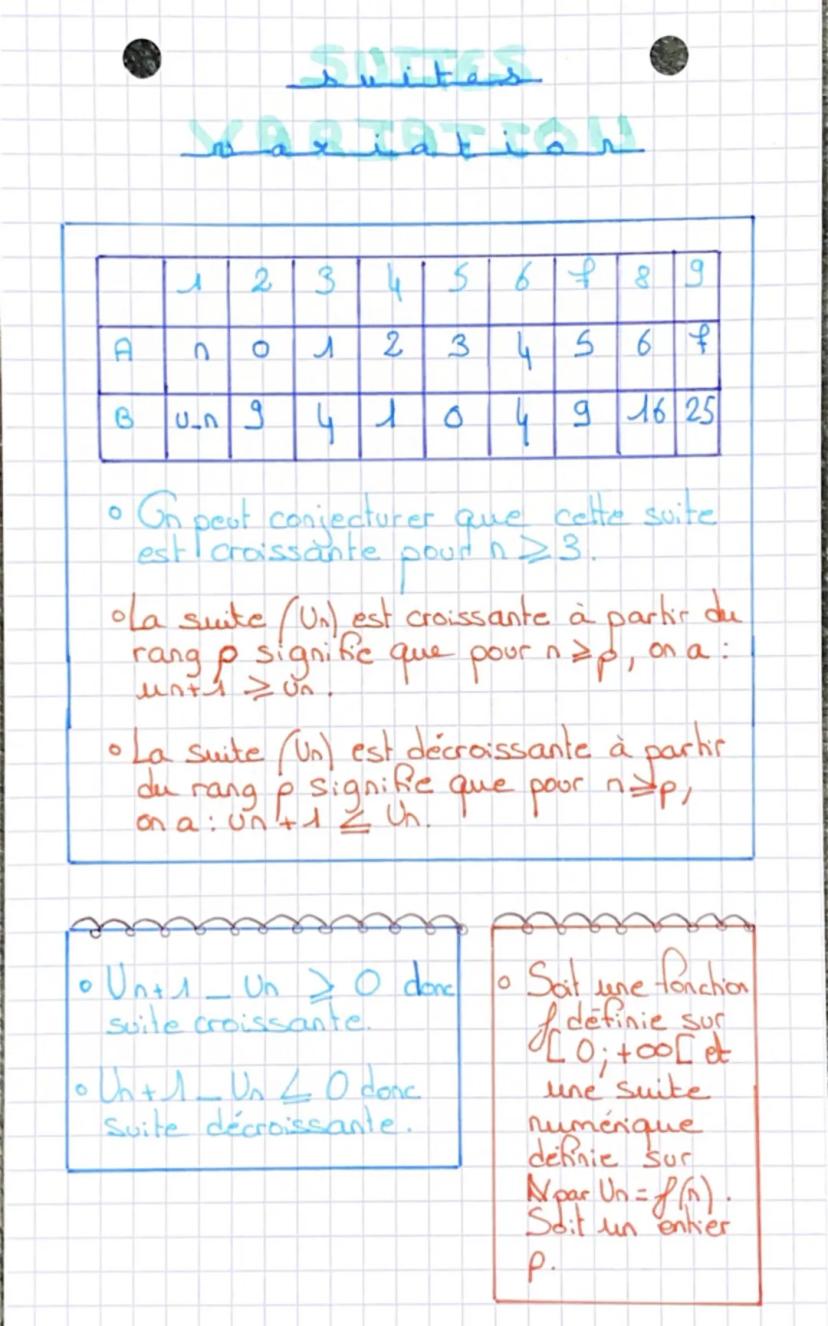 SUITES
suites
VARIATION
variation
1 2 3 4 5 6 7 8 9
A n 0 1 2 3 4 5 6 7
B U_n 9 4 1 0 4 9 16 25
• On peut conjecturer que cette suite
est croissante pour n ≥ 3.
• La suite (Un) est croissante à partir du
rang p signifie que pour n ≥ p, on a :
un+1 ≥ Un.
• La suite (Un) est décroissante à partir
du rang p signifie que pour n ≥ p,
on a : Un+1 ≤ Un.
• Un+1 _ Un ≥ 0 donc
suite croissante.
• Un+1 _ Un ≤ 0 donc
suite décroissante.
• Soit une fonction
f définie sur
[0 ; +∞[ et
une suite
numérique
définie sur
N par Un = f(n).
Soit un entier
p.